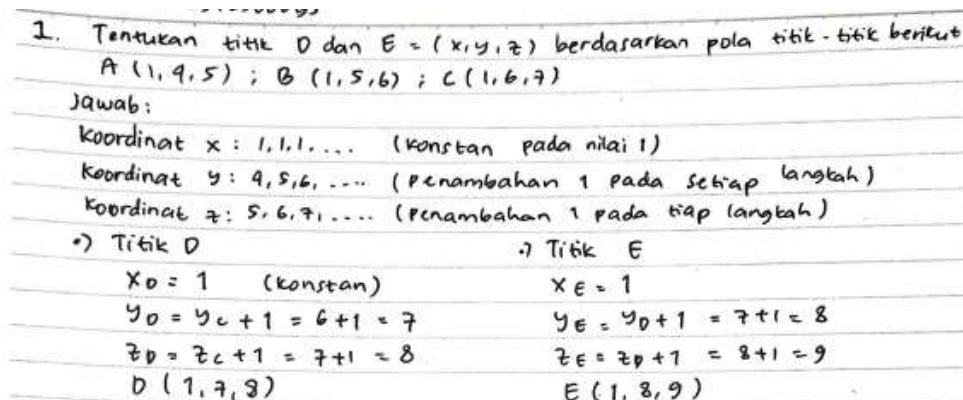 1. Tentukan titik D dan E = (x, y, z) berdasarkan pola titik-titik berikut
A (1, 4, 5) ; B (1, 5, 6) ; C (1, 6, 7)
Jawab:
Koordinat x : 1, 1, 1, .... (konstan pada nilai 1)
Koordinat y : 4, 5, 6, .... (Penambahan 1 pada setiap langkah)
Koordinat z : 5, 6, 7, .... (Penambahan 1 pada tiap langkah)
•) Titik D
xD = 1 (konstan)
yD = yC + 1 = 6 + 1 = 7
zD = zC + 1 = 7 + 1 = 8
D (1, 7, 8)
•) Titik E
xE = 1
yE = yD + 1 = 7 + 1 = 8
zE = zD + 1 = 8 + 1 = 9
E (1, 8, 9)